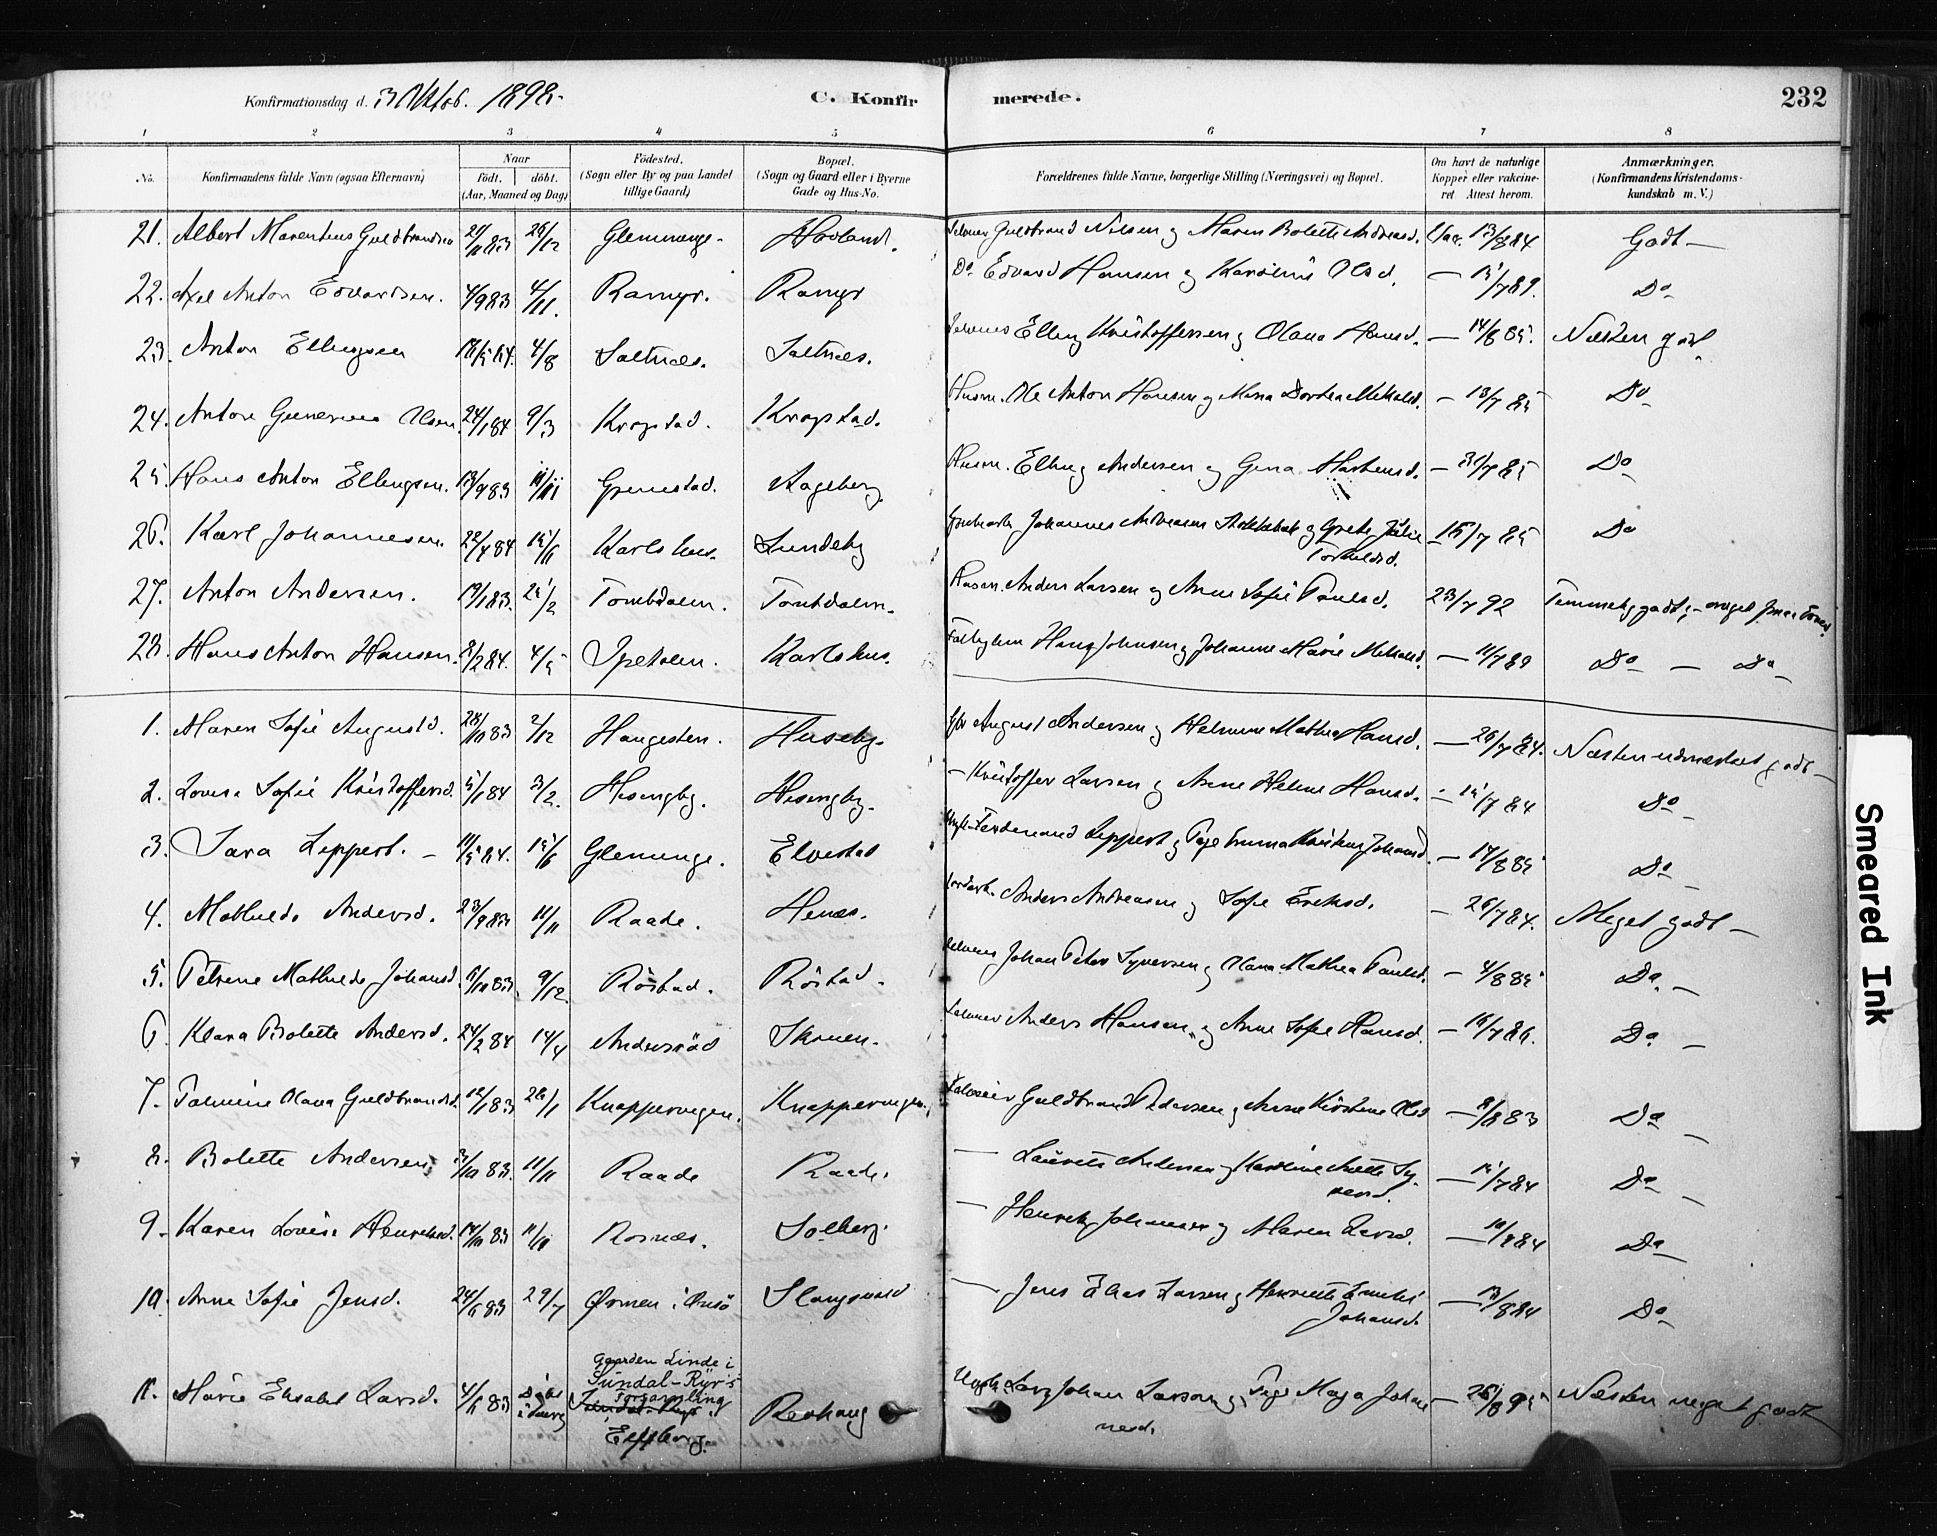 Konfirmationsdag d. 3 Oktob. 1898. C. Konfirmerede. 232
1 2 3 4 5 6 7 8
No. Konfirmandens fulde Navn (ogsaa Efternavn) Naar født. døbt. (Aar, Maaned og Dag) Fødested. (Sogn eller By og paa Landet tillige Gaard) Bopæl. (Sogn og Gaard eller i Byerne Gade og Hus-No. Forældrenes fulde Navne, borgerlige Stilling (Næringsvei) og Bopæl. Om havt de naturlige Kopper eller vakcineret Attest herom. Anmærkninger. (Konfirmandens Kristendomskundskab m. V.)
21. Albert Marentius Guldbrandsen 26/12 Glemminge Guldbrand Nilsen og Maren Bolette Andreasd. Vac. 13/8 84 Godt
22. Axel Anton Edvardsen. 4/9 83 4/11. Ramyr. Ramyr Do Edvard Hansen og Olsd. Do
23. Anton Ellingsen 4/8 Saltnæs. Saltnæs. Elling Kristoffersen og Olava Hansd. 14/8 85. Næsten godt
24. Anton Olsen 24/1 84 9/3 Krogstad. Krogstad. Husm. Ole Anton Hansen og Maria Dorthea 13/7 85 Do
25. Hans Anton Ellingsen. 13/9 83 11/11 Grimstad. Aageberg. Husm. Elling Andersen og Gina Martinsd. 31/7 85 Do
26. Karl Johannesen. 22/4 84 15/6 Karlshus. Lundeby Johannes Andreasen og Grete Julie 16/7 85 Do
Torkildsd.
27. Anton Andersen. 19/1 83. 25/2 Tombdalen. Tombdalen. Husm. Anders Larsen og Anne Sofie Paulsd. 23/7 92 Temmelig godt;
28. Hans Anton Hansen. 8/2 84. 4/5 Karlshus. Hans Johnsen og Johanne Marie 11/7 89 Do Do
1. Maren Sofie Augustd. 28/10 83 2/12 Haugesten. Huseby. August Andersen og Helmine Mathea Hansd. 26/7 84. Næsten udmærket godt
2. Lovise Sofie Kristoffersd. 5/1 84 3/2. Hesengby. Hesengby. Kristoffer Larsen og Anne Helene Hansd. 15/7 84 Do
3. Sara Leppert. 11/5 84. 15/6 Glemminge. Elvestad Ferdinand Leppert og Pige Emma Kristine Johansd. 14/8 85 Do
4. Mathilde Andersd. 23/9 83 11/11 Raade. Henæs. Anders Andreasen og Sofie Eriksd. 26/7 84. Meget godt
5. Petrine Mathilde Johansd. 6/10 83. 9/12. Röstad. Röstad. Johan Peter Syversen og Olava Mathea Paulsd. 4/8 85 Do
6. Klara Bolette Andersd. 24/2 84 14/4 Andersröd Skruen. Anders Hansen og Anne Sofie Hansd. 16/7 86. Do
7. Palmine Olava Guldbrandsd. 12/1 83 28/1 Knappervegen. Knappervegen. Guldbrand Pedersen og Anne Kirstine Olsd 8/8 83 Do
8. Bolette Andersen 3/10 83. 11/11 Raade Raade. Laurits Andersen og Karoline Anette Sy- 15/7 84 Do
versd.
9. Karen Lovise Henriksd. 14/10 83 11/11 Rosnæs. Solberg. Henrik Johansen og Maren Larsd. 10/8 84 Do
10. Anne Sofie Jensd. 24/6 83 29/7 Ørmen i Onsö Slangsvold Jens Elias Larsen og Henriette Emilie 13/8 84 Do
Johansd.
Gaarden Linde i
Sundal-Ryr's
Forsamling
11. Marie Elisabet Larsd. 4/6 83 Döbt i Sverig Elfsborg. Revhaug Lars Johan Larson og Pige Maja Johan- 26/8 95 Næsten meget godt
nesd.
Smeared Ink